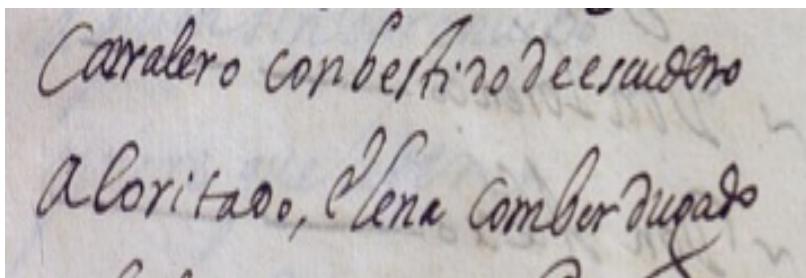 Carralero con bestido de escudero
a loritado, Elena com berdugado